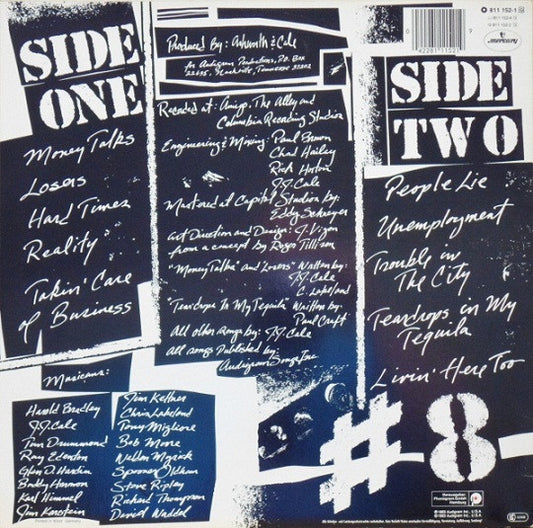 SIDE
ONE
Money Talks
Losers
Hard Times
Reality
Takin' Care
of Business
Produced By: Ashworth & Cale
for Audigram Productions, P.O. Box
22635, Nashville, Tennessee 37202
Recorded at: Amigo, The Alley and
Columbia Recording Studios
Engineering & Mixing: Paul Brown
Chad Hailey
Rick Horton
J.J. Cale
Mastered at Capitol Studios by:
Eddy Schreyer
Art Direction and Design: J. Vigon
from a concept by Roger Tillison
"Money Talks" and Losers" Written by:
J.J. Cale
C. Lakeland
"Teardrops In My Tequila" Written by:
Paul Craft
All other songs by: J.J. Cale
All songs Published by:
Audigram Songs Inc
811 152-1
mercury
SIDE
TWO
People Lie
Unemployment
Trouble in
The City
Teardrops in My
Tequila
Livin' Here Too
#8
Musicians:
Harold Bradley
J.J. Cale
Tom Drummond
Ray Edenton
Glen D. Hardin
Buddy Harmon
Karl Himmel
Jim Karstein
Jim Keltner
Chris Lakeland
Tony Migliore
Bob Moore
Weldon Myrick
Spooner Oldham
Steve Ripley
Richard Thompson
David Waddel
Printed in West Germany
Herausgeber:
Phonogram GmbH
Hamburg
℗ 1983 Audigram Inc., U.S.A.
© 1983 Audigram Inc., U.S.A.